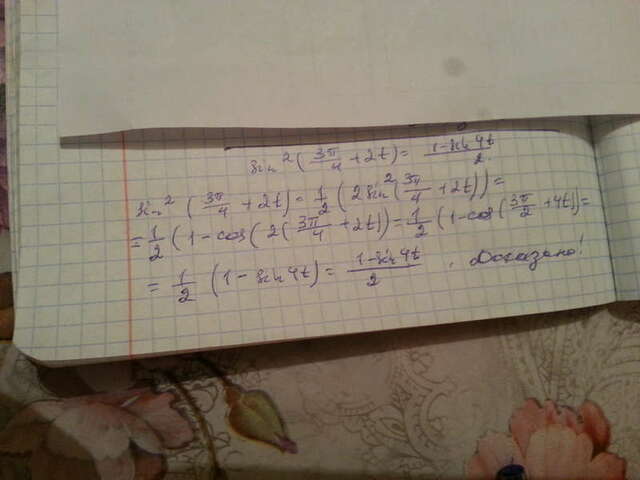 sin²(3π/4 + 2t) = (1 - sin 4t)/2
sin²(3π/4 + 2t) = 1/2 (2 sin²(3π/4 + 2t)) =
= 1/2 (1 - cos(2(3π/4 + 2t)) = 1/2 (1 - cos(3π/2 + 4t)) =
= 1/2 (1 - sin 4t) = (1 - sin 4t)/2 . Доказано!